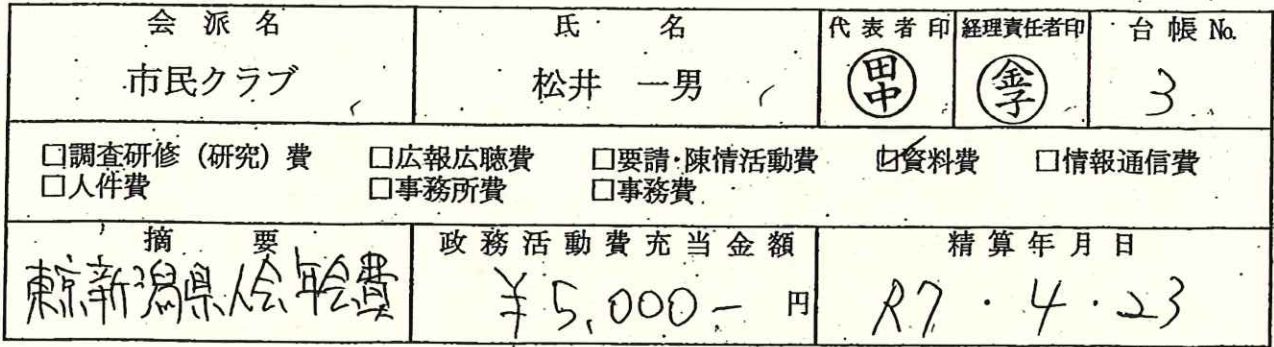 会派名 氏名 代表者印 経理責任者印 台帳 No.
市民クラブ 松井 一男 田中 金子 3
□調査研修(研究)費 □広報広聴費 □要請・陳情活動費 ☑資料費 □情報通信費
□人件費 □事務所費 □事務費
摘要 政務活動費充当金額 精算年月日
東京新潟県人会年会費 ¥5,000- 円 R7・4・23